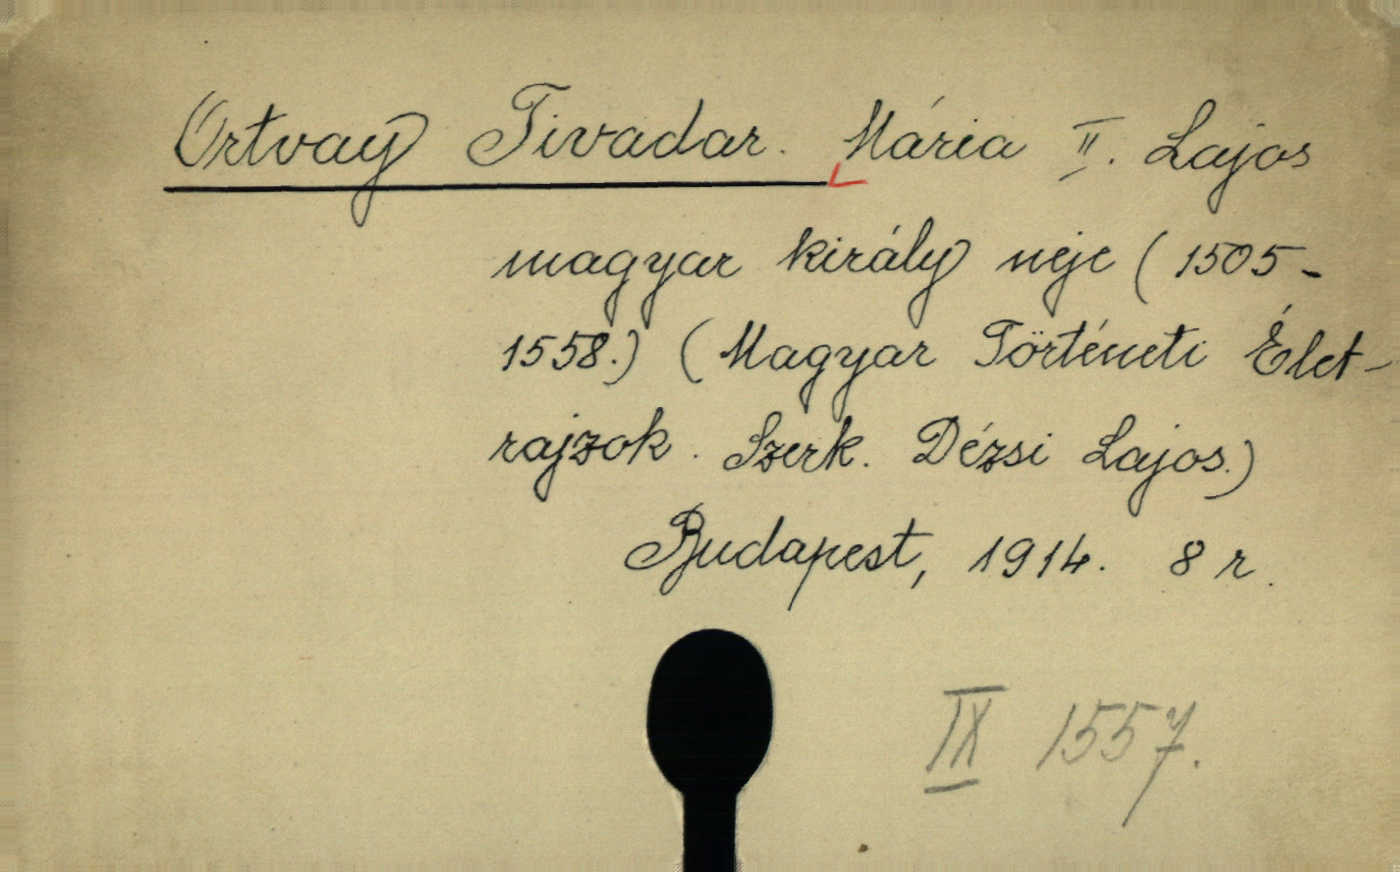 Ortvay Tivadar. Mária II. Lajos
magyar király neje (1505-
1558.) (Magyar Történeti Élet-
rajzok. Szerk. Dézsi Lajos.)
Budapest, 1914. 8 r.
IX 1557.